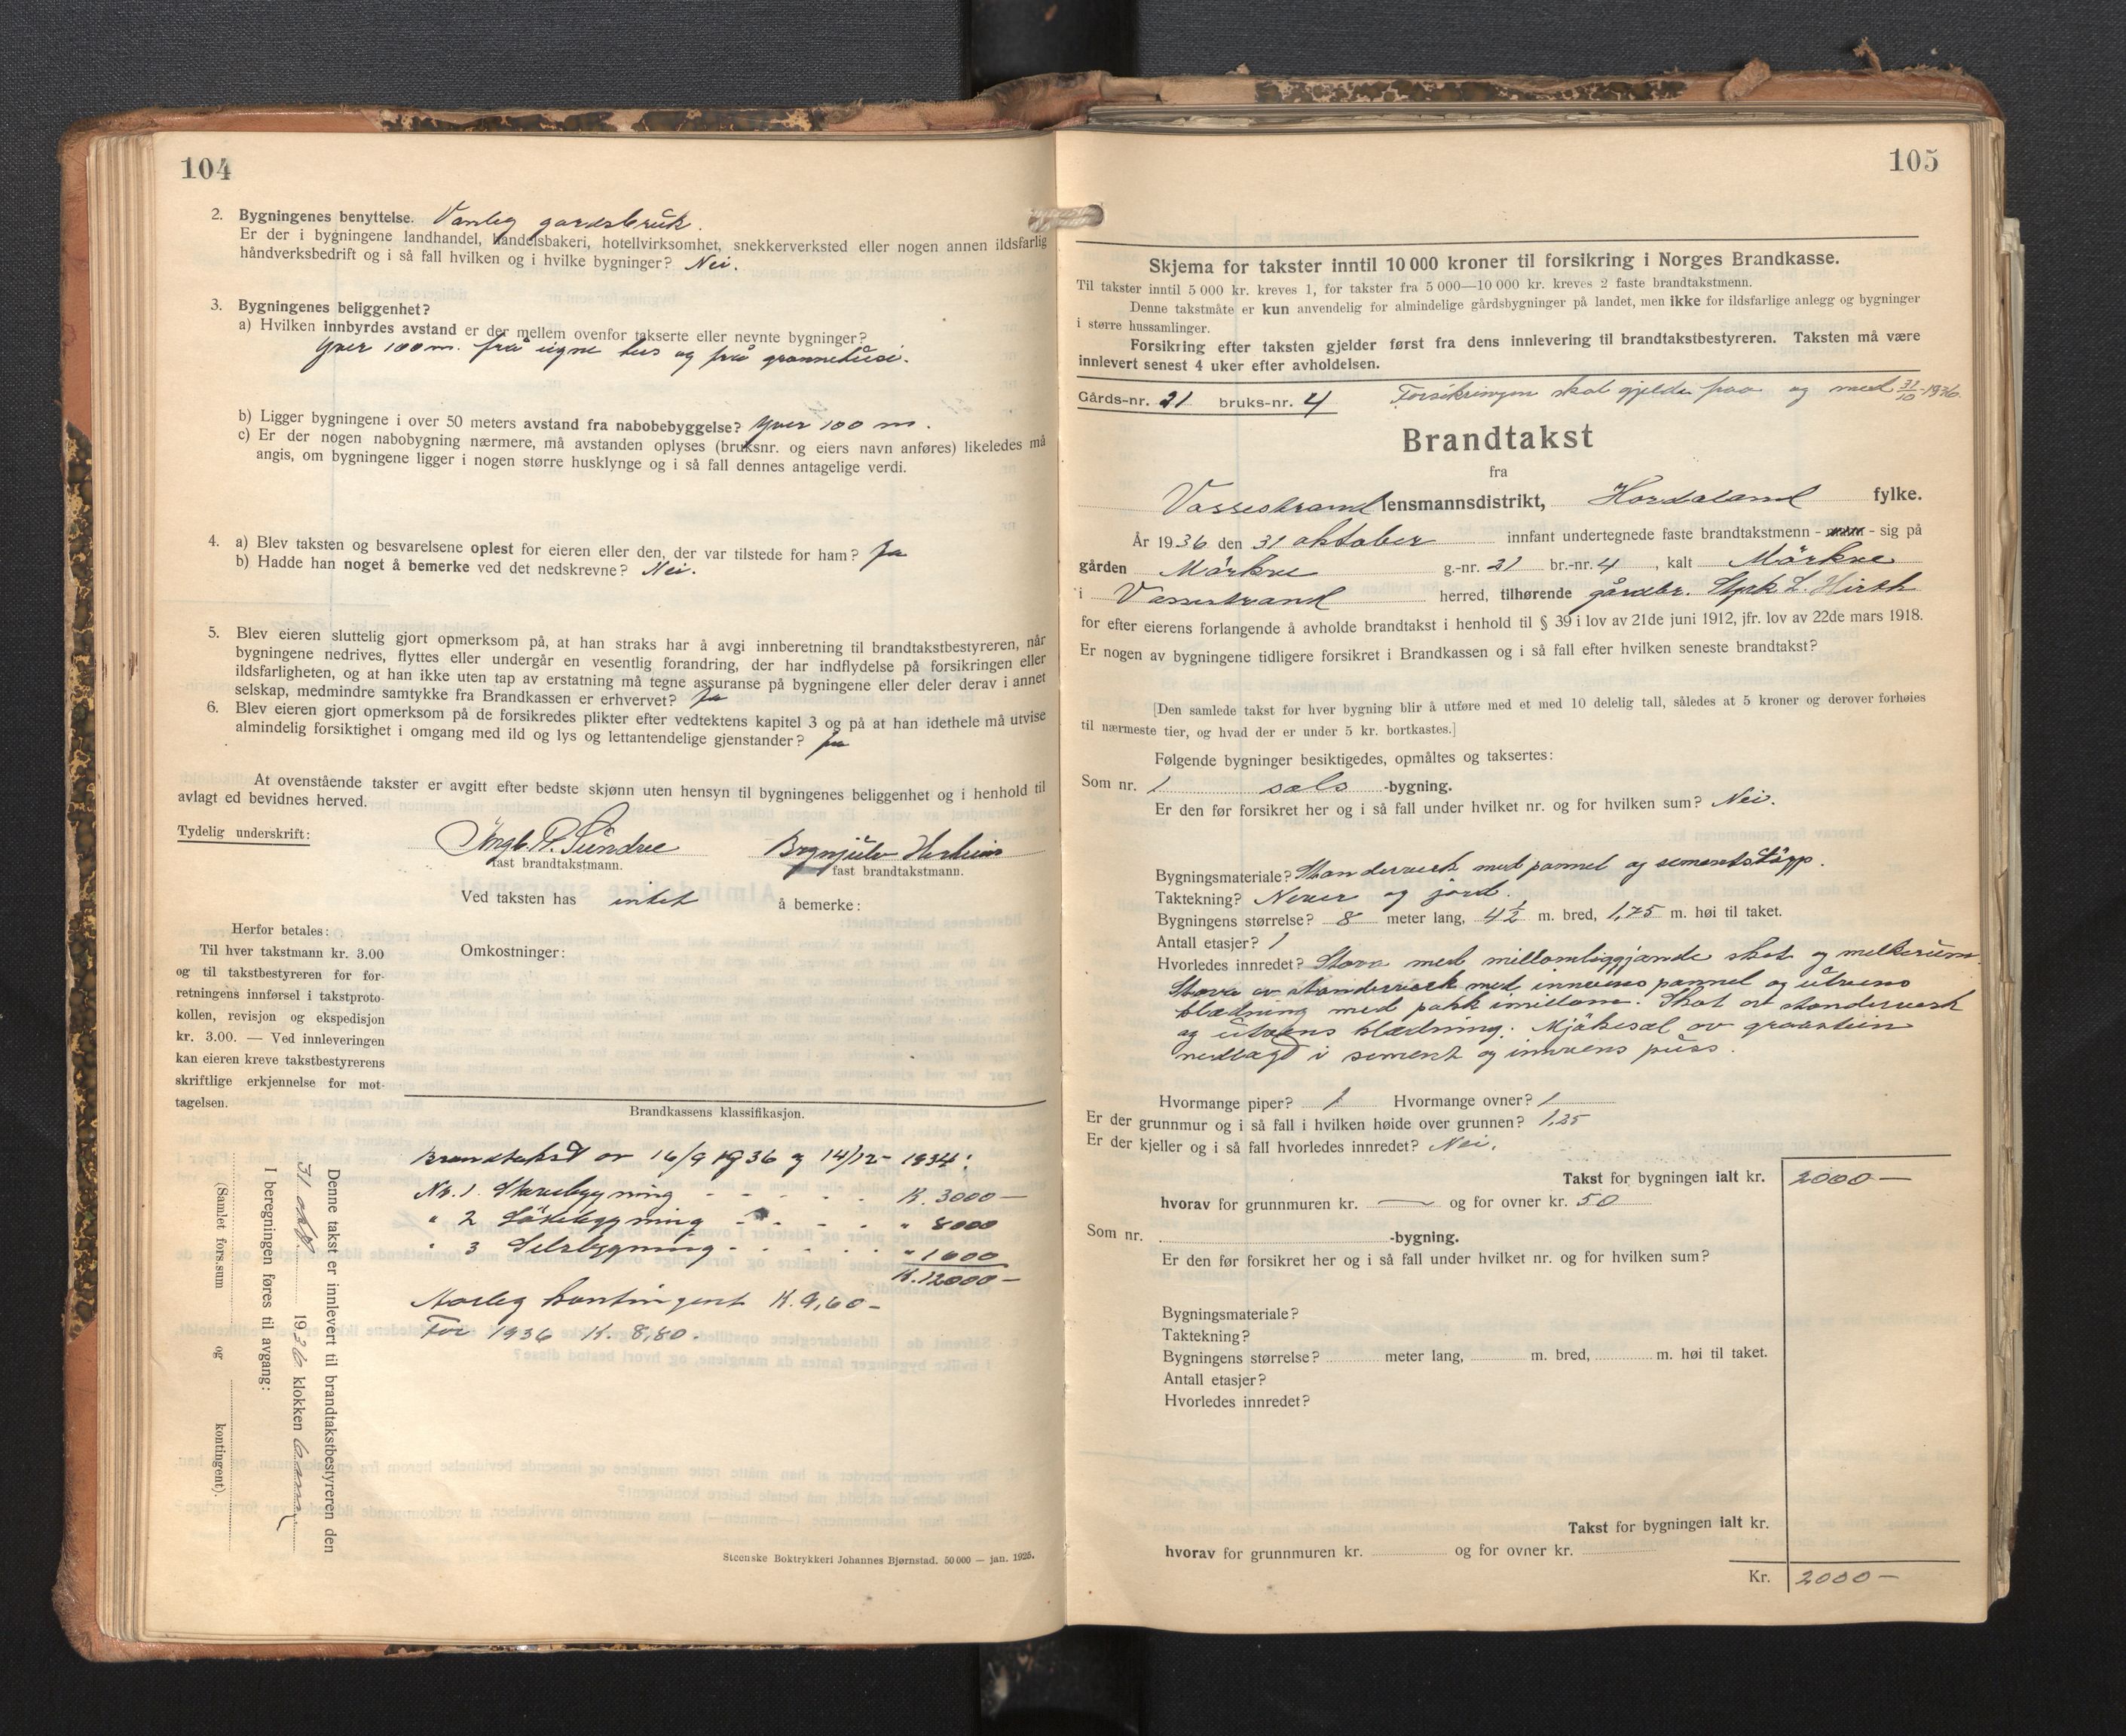 104
2. Bygningenes benyttelse. Vanleg gardsbruk.
Er der i bygningene landhandel, handelsbakeri, hotellvirksomhet, snekkerverksted eller nogen annen ildsfarlig
håndverksbedrift og i så fall hvilken og i hvilke bygninger? Nei.
3. Bygningenes beliggenhet?
a) Hvilken innbyrdes avstand er der mellem ovenfor takserte eller nevnte bygninger?
Yver 100 m. frå eigne hus og frå grannehusi.
b) Ligger bygningene i over 50 meters avstand fra nabobebyggelse? Yver 100 m.
c) Er der nogen nabobygning nærmere, må avstanden oplyses (bruksnr. og eiers navn anføres) likeledes må
angis, om bygningene ligger i nogen større husklynge og i så fall dennes antagelige verdi.
4. a) Blev taksten og besvarelsene oplest for eieren eller den, der var tilstede for ham? Ja
b) Hadde han noget å bemerke ved det nedskrevne? Nei.
5. Blev eieren sluttelig gjort opmerksom på, at han straks har å avgi innberetning til brandtakstbestyreren, når
bygningene nedrives, flyttes eller undergår en vesentlig forandring, der har indflydelse på forsikringen eller
ildsfarligheten, og at han ikke uten tap av erstatning må tegne assuranse på bygningene eller deler derav i annet
selskap, medmindre samtykke fra Brandkassen er erhvervet? Ja
6. Blev eieren gjort opmerksom på de forsikredes plikter efter vedtektens kapitel 3 og på at han idethele må utvise
almindelig forsiktighet i omgang med ild og lys og lettantendelige gjenstander? Ja
At ovenstående takster er avgitt efter bedste skjønn uten hensyn til bygningenes beliggenhet og i henhold til
avlagt ed bevidnes herved.
Tydelig underskrift:
Ingb. P. Sundve Brynjulv Herheim
fast brandtakstmann. fast brandtakstmann.
Ved taksten has intet å bemerke:
Herfor betales:
Til hver takstmann kr. 3.00
og til takstbestyreren for for-
retningens innførsel i takstproto-
kollen, revisjon og ekspedisjon
kr. 3.00. — Ved innleveringen
kan eieren kreve takstbestyrerens
skriftlige erkjennelse for mot-
tagelsen.
Omkostninger:
Brandkassens klassifikasjon.
Brandtakst av 16/9 1936 og 14/12 - 1934:
Nr. 1 Stovebygning - - - - K. 3000 —
" 2 Lödebygning - - - - " 8000
" 3 Selsbygning - - - - " 1000
K. 12000 —
Aarleg kontingent K. 9,60 -
For 1936 K. 8,80.
Denne takst er innlevert til brandtakstbestyreren den
31 okt. 1936 klokken
I beregningen føres til avgang:
(Samlet fors.sum og kontingent).
Steenske Boktrykkeri Johannes Bjørnstad. 50 000 — jan. 1925.
105
Skjema for takster inntil 10 000 kroner til forsikring i Norges Brandkasse.
Til takster inntil 5 000 kr. kreves 1, for takster fra 5 000—10 000 kr. kreves 2 faste brandtakstmenn.
Denne takstmåte er kun anvendelig for almindelige gårdsbygninger på landet, men ikke for ildsfarlige anlegg og bygninger
i større hussamlinger.
Forsikring efter taksten gjelder først fra dens innlevering til brandtakstbestyreren. Taksten må være
innlevert senest 4 uker efter avholdelsen.
Gårds-nr. 21 bruks-nr. 4 Forsikringen skal gjelde fraa og med 31/10-1936.
Brandtakst
fra
Vossestrand lensmannsdistrikt, Hordaland fylke.
År 1936 den 31 oktober innfant undertegnede faste brandtakstmenn - sig på
gården Mörkve g.-nr. 21 br.-nr. 4, kalt Mörkve
i Vossestrand herred, tilhørende gårdbr. Styrk L. Hirth
for efter eierens forlangende å avholde brandtakst i henhold til § 39 i lov av 21de juni 1912, jfr. lov av 22de mars 1918.
Er nogen av bygningene tidligere forsikret i Brandkassen og i så fall efter hvilken seneste brandtakst?
[Den samlede takst for hver bygning blir å utføre med et med 10 delelig tall, således at 5 kroner og derover forhøies
til nærmeste tier, og hvad der er under 5 kr. bortkastes.]
Følgende bygninger besiktigedes, opmåltes og taksertes:
Som nr. 1 sæls -bygning.
Er den før forsikret her og i så fall under hvilket nr. og for hvilken sum? Nei.
Bygningsmateriale? Standerverk med pannel og sementstöyp.
Taktekning? Never og jord.
Bygningens størrelse? 8 meter lang, 4 1/2 m. bred, 1,75 m. høi til taket.
Antall etasjer? 1
Hvorledes innredet? Stova med millomliggjande skot og melkerum.
Stova av standerverk med innvens pannel og utvens
klædning med pakk imillom. Skot av standerverk
og utvens klædning. Mjökesel av graastein
nedlagt i sement og innvens puss.
Hvormange piper? 1 Hvormange ovner? 1
Er der grunnmur og i så fall i hvilken høide over grunnen? 1,25
Er der kjeller og i så fall hvorledes innredet? Nei.
Takst for bygningen ialt kr. 2000 —
hvorav for grunnmuren kr. — og for ovner kr. 50
Som nr. -bygning.
Er den før forsikret her og i så fall under hvilket nr. og for hvilken sum?
Bygningsmateriale?
Taktekning?
Bygningens størrelse? meter lang, m. bred, m. høi til taket.
Antall etasjer?
Hvorledes innredet?
Takst for bygningen ialt kr.
hvorav for grunnmuren kr. og for ovner kr.
Kr. 2000 —